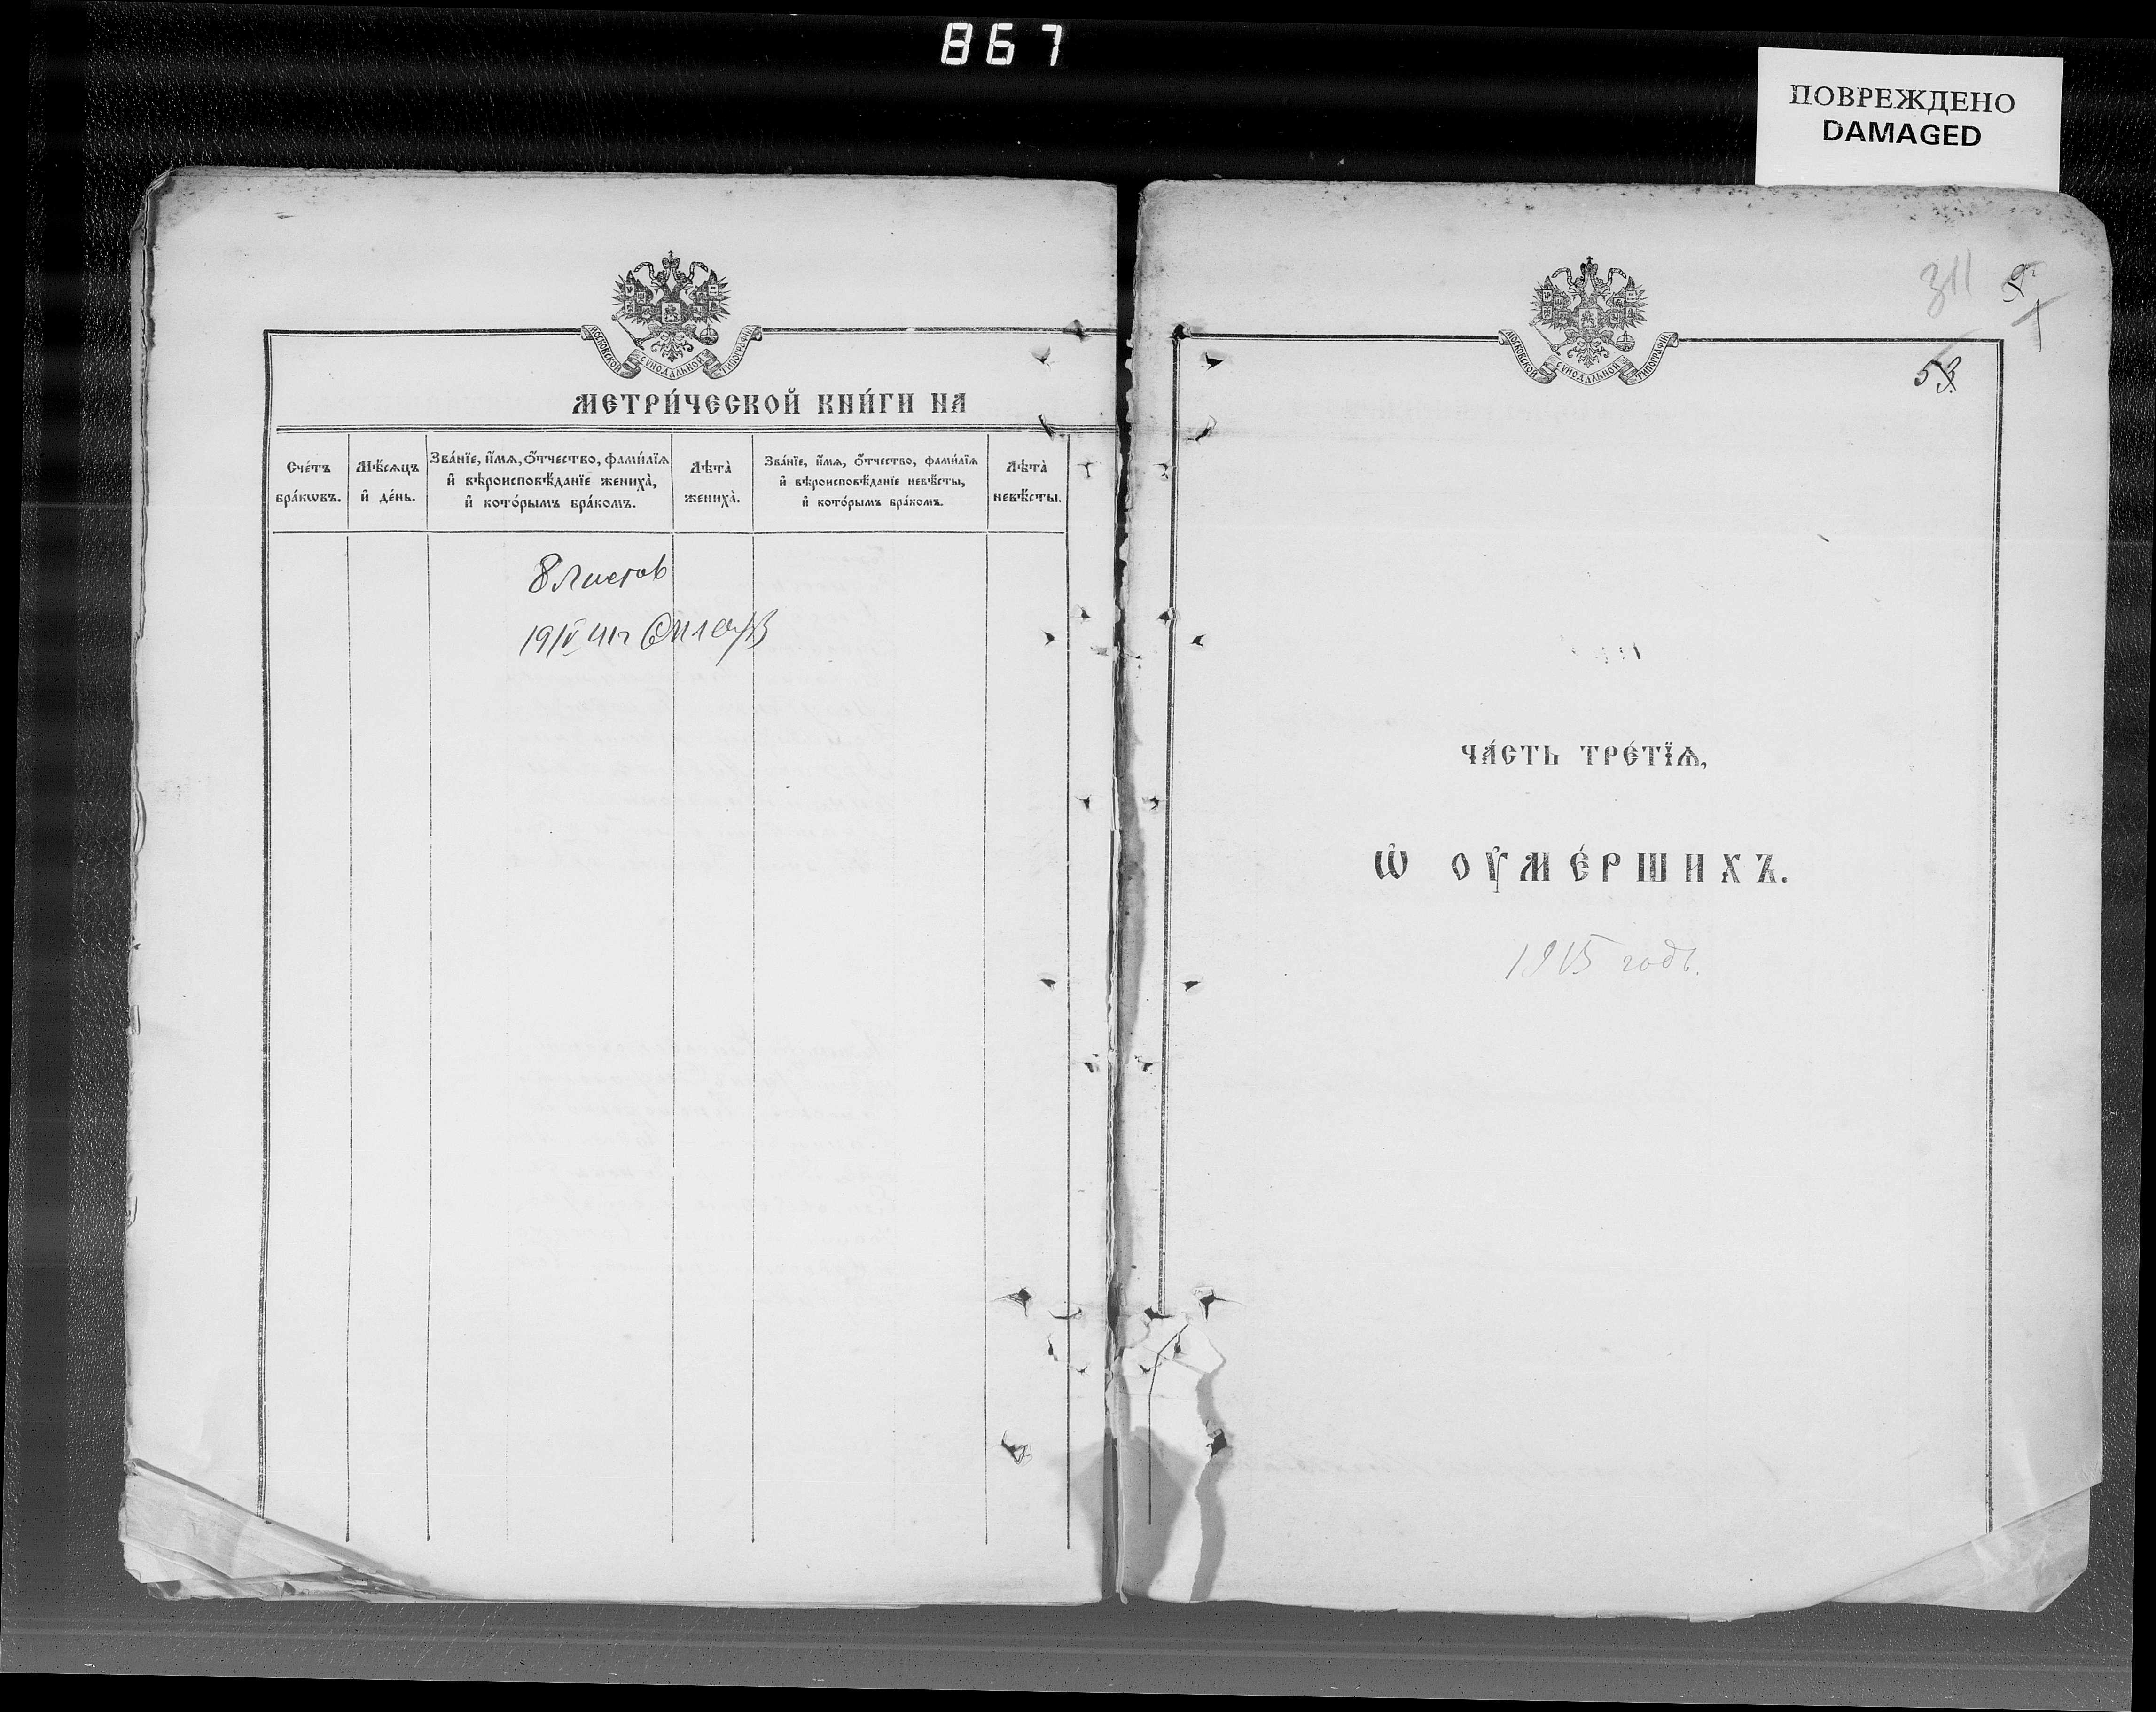 867
ПОВРЕЖДЕНО
DAMAGED
МОСКОВСКОЙ СѴНОДАЛЬНОЙ ТИПОГРАФІИ
МЕТРИ́ЧЕСКОЙ КНИ́ГИ НА
Сче́тъ бра́кѡвъ.
Мѣ́сѧцъ и҆ де́нь.
Зва́нїе, и҆́мѧ, ѻ҆́тчество, фами́лїѧ
и҆ вѣроисповѣ́данїе жениха̀,
и҆ кото́рымъ бра́комъ.
Лѣта̀ жениха̀.
Зва́нїе, и҆́мѧ, ѻ҆́тчество, фами́лїѧ
и҆ вѣроисповѣ́данїе невѣ́сты,
и҆ кото́рымъ бра́комъ.
Лѣта̀ невѣ́сты.
8 листов
19/V 41г
311
МОСКОВСКОЙ СѴНОДАЛЬНОЙ ТИПОГРАФІИ
53
ЧА́СТЬ ТРЕ́ТЇѦ,
Ѡ҆ ОУ҆МЕ́РШИХЪ.
1915 годъ.